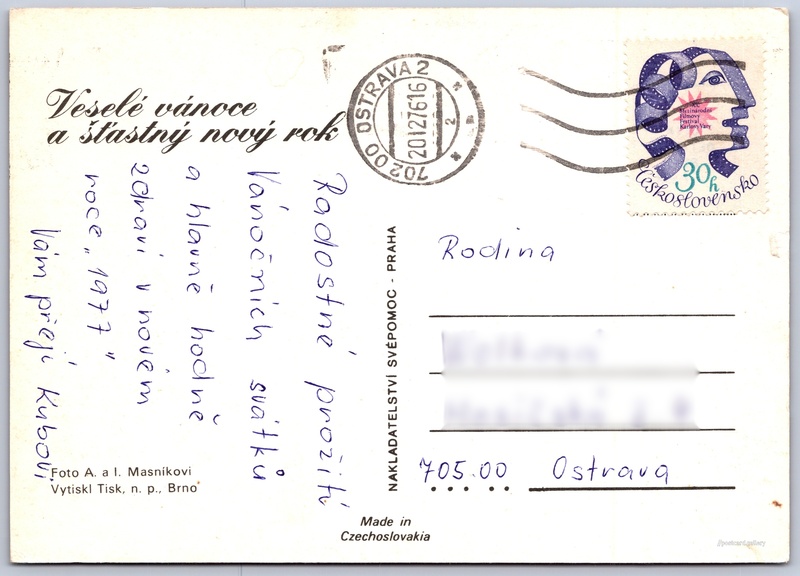 Veselé vánoce
a šťastný nový rok
Radostné prožití
Vánočních svátků
a hlavně hodně
zdraví v novém
roce „1977"
Vám přejí Kubovi.
Foto A. a I. Masníkovi
Vytiskl Tisk, n. p., Brno
NAKLADATELSTVÍ SVÉPOMOC - PRAHA
Made in
Czechoslovakia
702 00 OSTRAVA 2
20.12.76 16
2
XX.
Mezinárodní
Filmový
Festival
Karlovy Vary
30h
Československo
Rodina
705.00 Ostrava